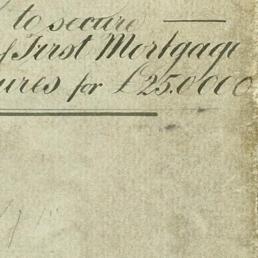 to secure
of First Mortgage
ures for £25.0000